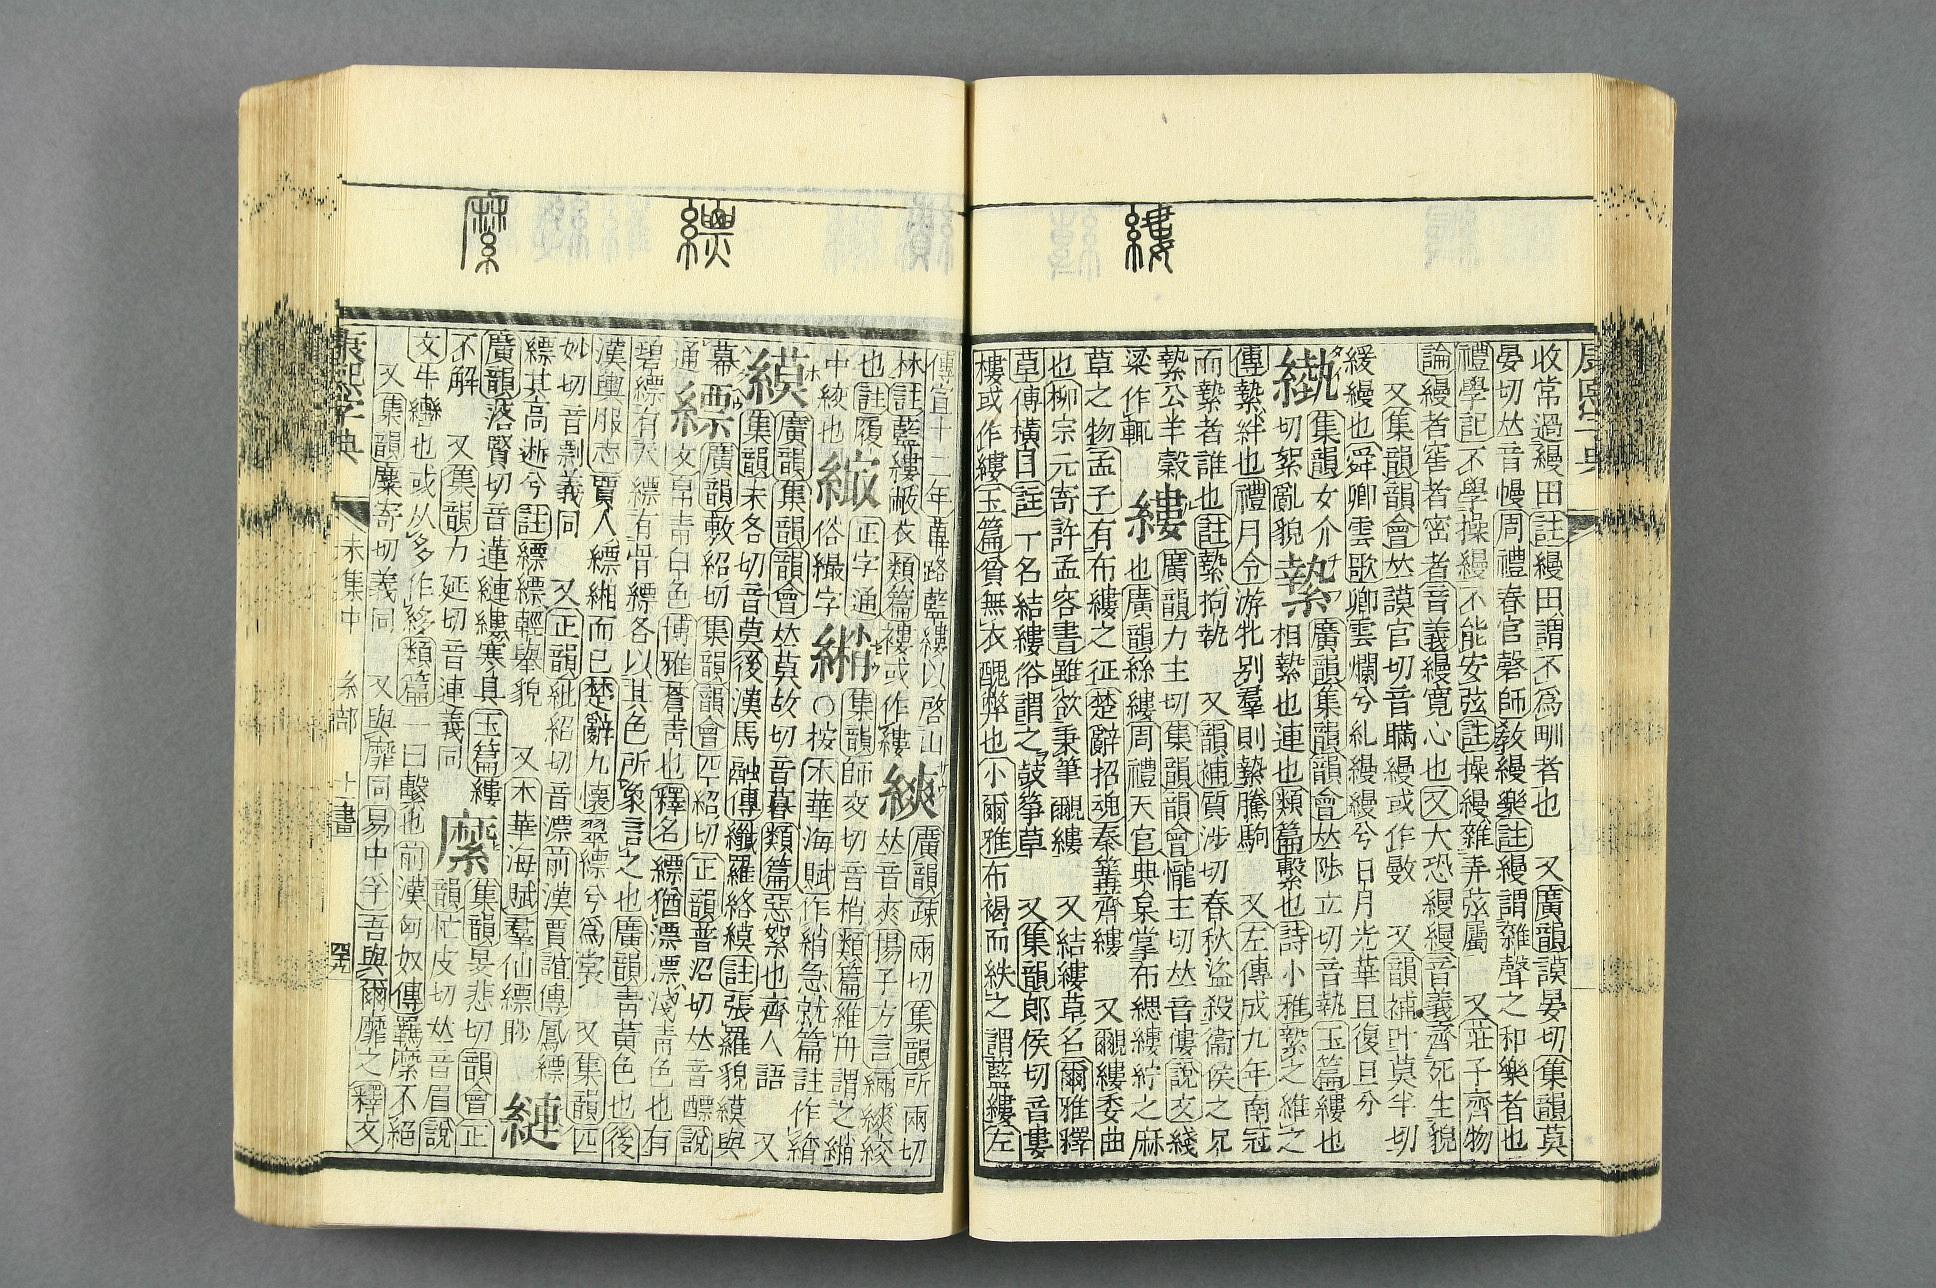 縷
康熙字典
收常過縵田註縵田謂不爲甽者也 又廣韻謨晏切集韻莫
晏切𠀤音幔周禮春官磬師敎縵樂註縵謂雜聲之和樂者也
禮學記不學操縵不能安弦註操縵雜弄弦屬 又莊子齊物
論縵者窖者密者音義縵寬心也又大恐縵縵音義齊死生貌
又集韻韻會𠀤謨官切音瞞縵或作 又韻補叶莫半切
緩縵也舜卿雲歌卿雲爛兮糺縵縵兮日月光華旦復旦兮
集韻女介切絮亂貌
縶 廣韻集韻韻會𠀤陟立切音執玉篇縷也
相縶也連也類篇繫也詩小雅縶之維之
傳縶絆也禮月令游牝別羣則縶騰駒 又左傳成九年南冠
而縶者誰也註縶拘執 又韻補質涉切春秋盜殺衞侯之兄
縶公羊穀梁作輒
縷 廣韻力主切集韻韻會隴主切𠀤音僂說文綫
也廣韻絲縷周禮天官典枲掌布緦縷紵之麻
草之物孟子有布縷之征楚辭招魂秦篝齊縷 又覼縷委曲
也柳宗元寄許孟容書雖欲秉筆覼縷 又結縷草名爾雅釋
草傳橫目註一名結縷俗謂之鼓箏草 又集韻郎侯切音婁
樓或作縷玉篇貧無衣醜弊也小爾雅布褐而紩之謂藍縷左
縹 縻
傳宣十二年蓽路藍縷以啓山
林註藍縷敝衣類篇褸或作縷
縔 廣韻疎兩切集韻所兩切
𠀤音爽揚子方言緉縔絞
也註履中絞也
正字通俗繓字
集韻師交切音梢類篇維舟謂之
○按木華海賦作綃急就篇註作
縸 廣韻集韻韻會𠀤莫故切音暮類篇惡絮也齊人語 又
集韻末各切音莫後漢馬融傳纖羅絡縸註張羅貌縸與
幕通
縹 廣韻敷紹切集韻韻會匹紹切正韻普沼切𠀤音醥說
文帛靑白色博雅蒼靑也釋名縹猶漂漂淺靑色也有
碧縹有天縹有骨縹各以其色所象言之也廣韻靑黃色也後
漢輿服志賈人縹緗而已楚辭九懷翠縹兮爲裳 又集韻匹
妙切音剽義同 又正韻紕紹切音漂前漢賈誼傳鳳縹
縹其高逝兮註縹縹輕舉貌 又木華海賦羣仙縹眇
縺
廣韻落賢切音蓮縺縷寒具玉篇縷
不解 又集韻力延切音連義同
縻 集韻旻悲切韻會正
韻忙皮切𠀤音眉說
文牛轡也或从多作類篇一曰繫也前漢匈奴傳羈縻不絕
又集韻縻寄切義同 又與靡同易中孚吾與爾靡之釋文
康熙字典 未集中 糸部 十一畫